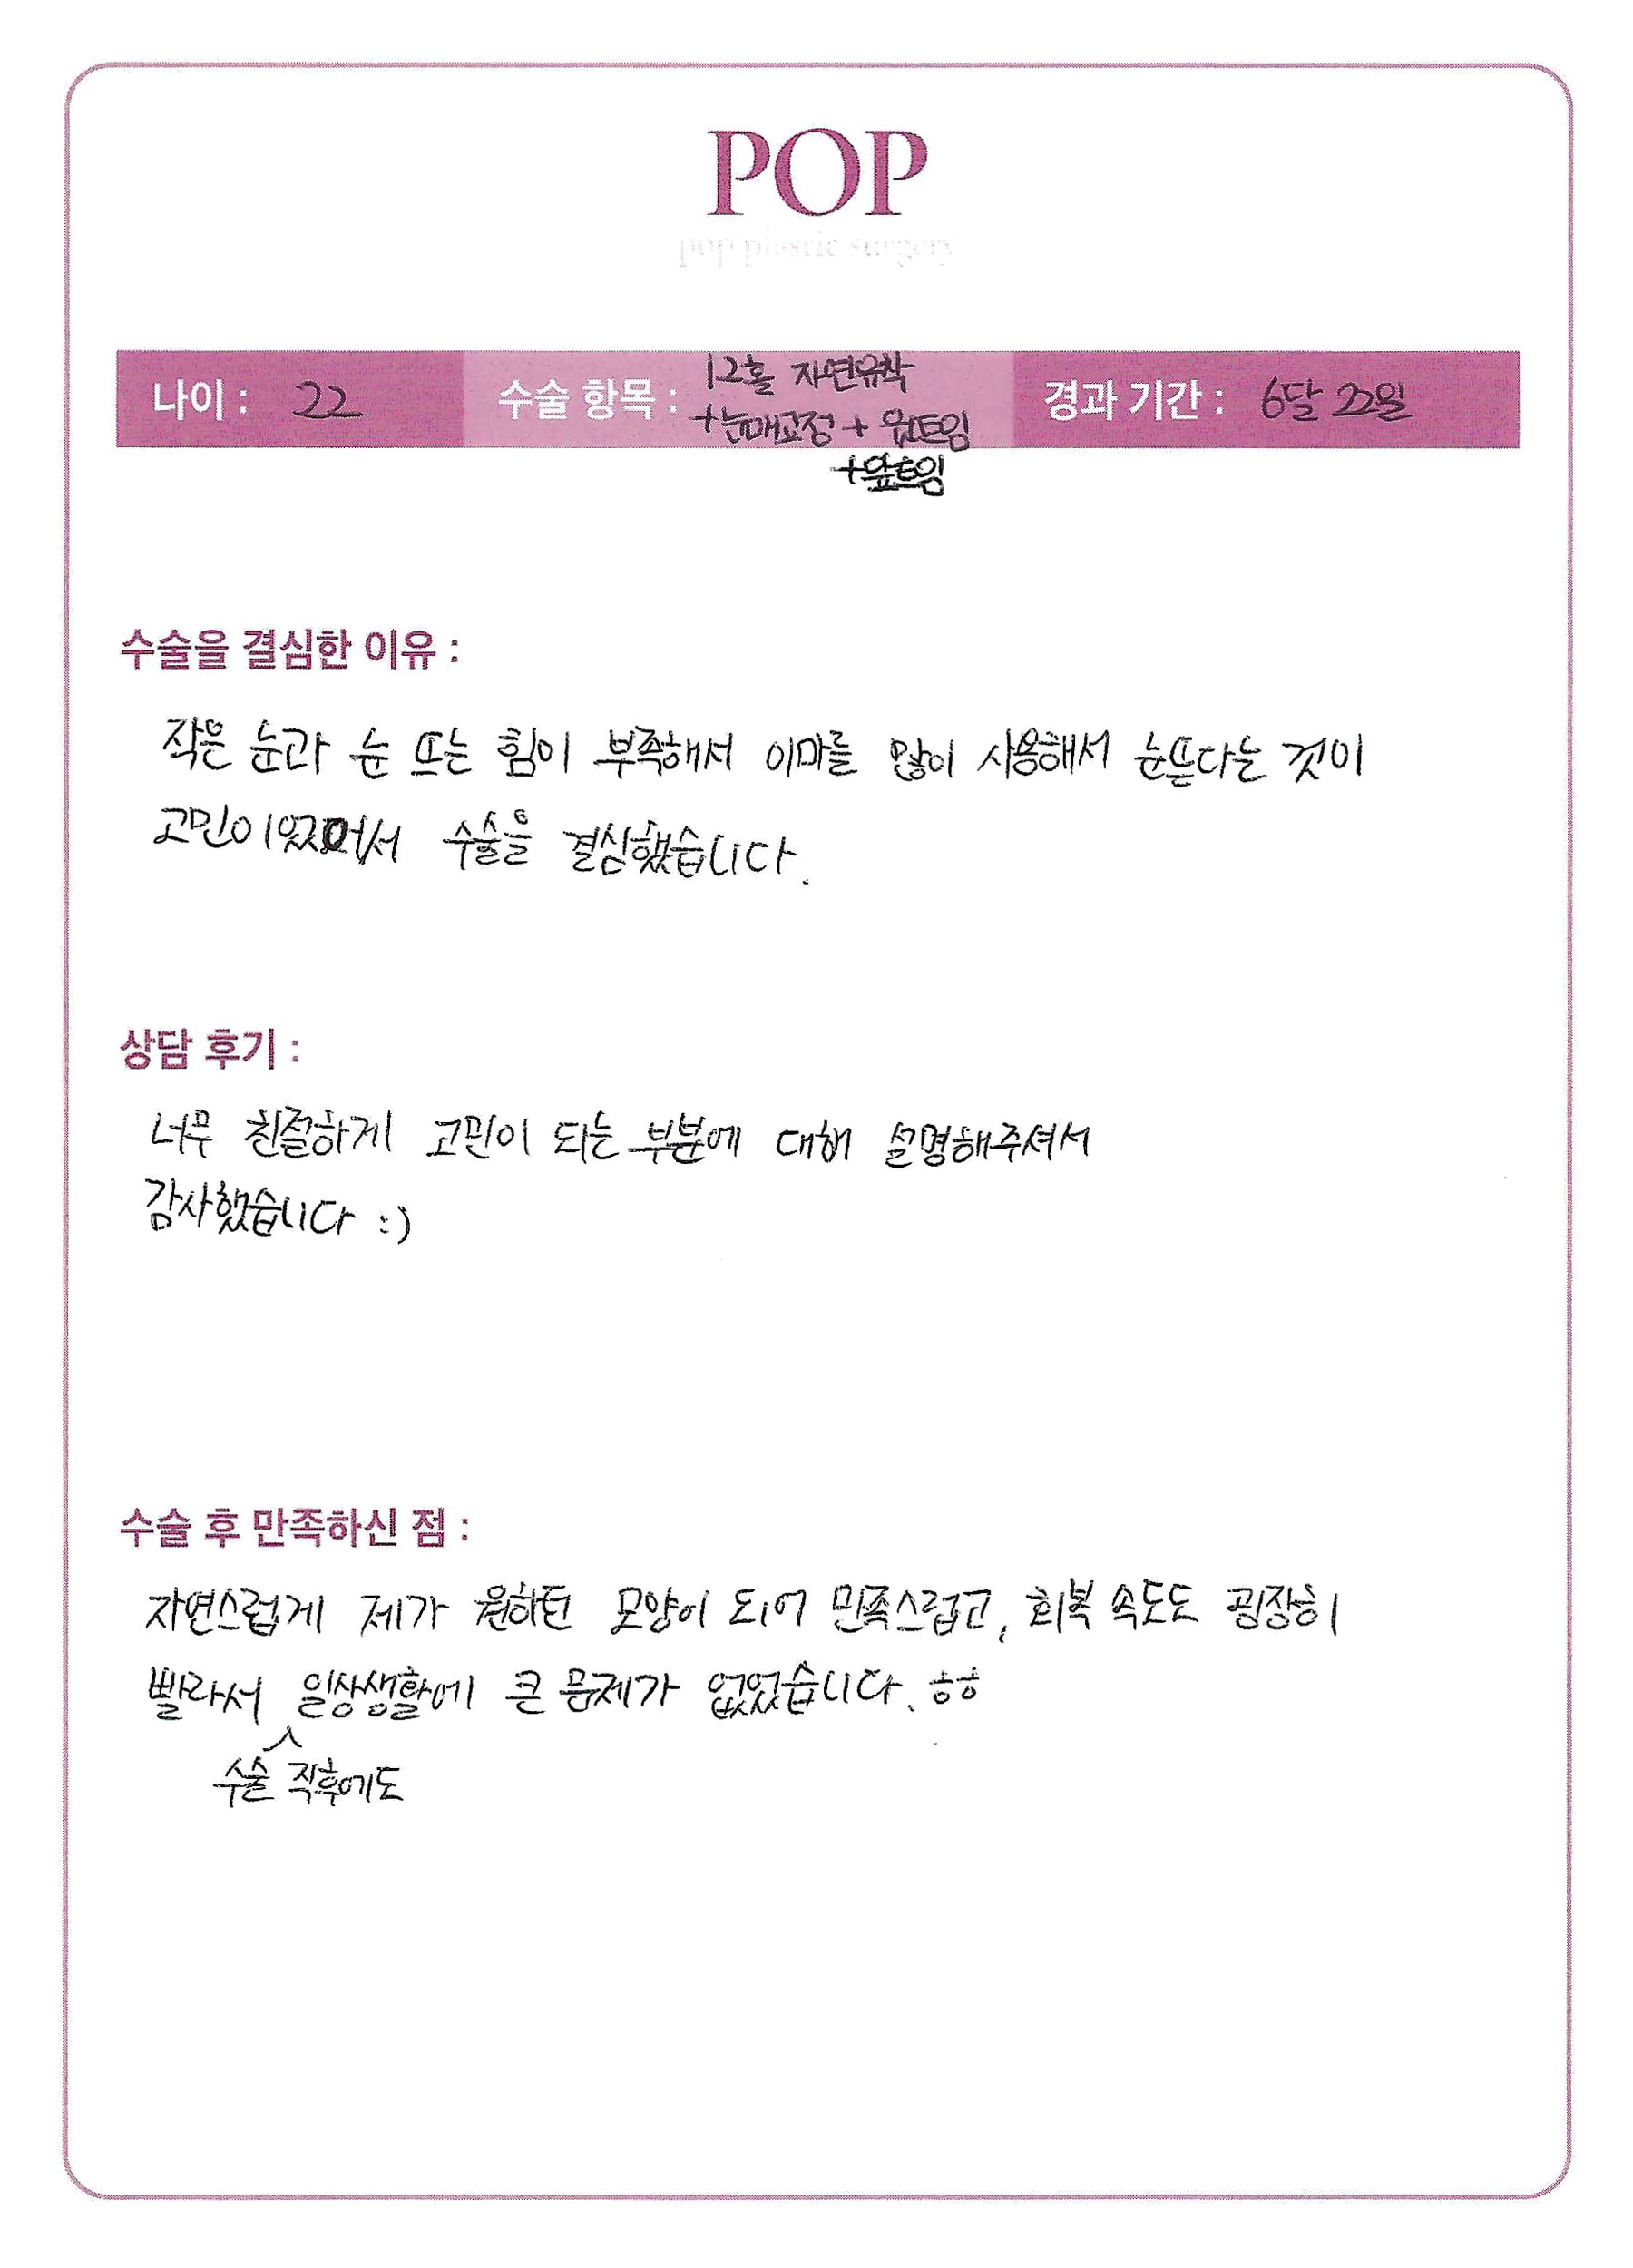 POP
pop plastic surgery
나이 : 22 수술 항목 : 12홀 자연유착 경과 기간 : 6달 22일
+눈매교정 + 윗트임
+앞트임
수술을 결심한 이유 :
작은 눈과 눈 뜨는 힘이 부족해서 이마를 많이 사용해서 눈뜬다는 것이
고민이었어서 수술을 결심했습니다.
상담 후기 :
너무 친절하게 고민이 되는 부분에 대해 설명해주셔서
감사했습니다 :)
수술 후 만족하신 점 :
자연스럽게 제가 원하던 모양이 되어 만족스럽고, 회복 속도도 굉장히
빨라서 일상생활에 큰 문제가 없었습니다. ㅎㅎ
수술 직후에도